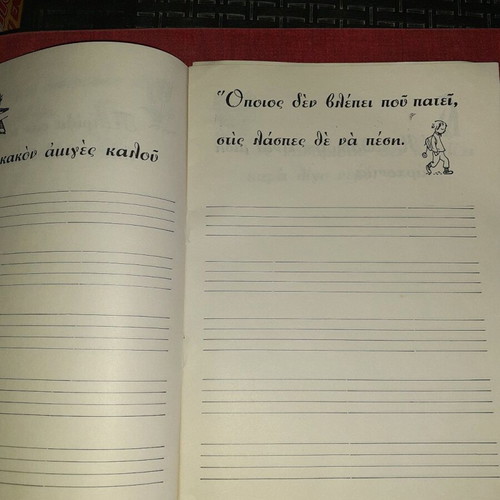 κακὸν ἀμιγὲς καλοῦ
Ὅποιος δὲν βλέπει ποῦ πατεῖ,
στὶς λάσπες δὲ νὰ πέσῃ.